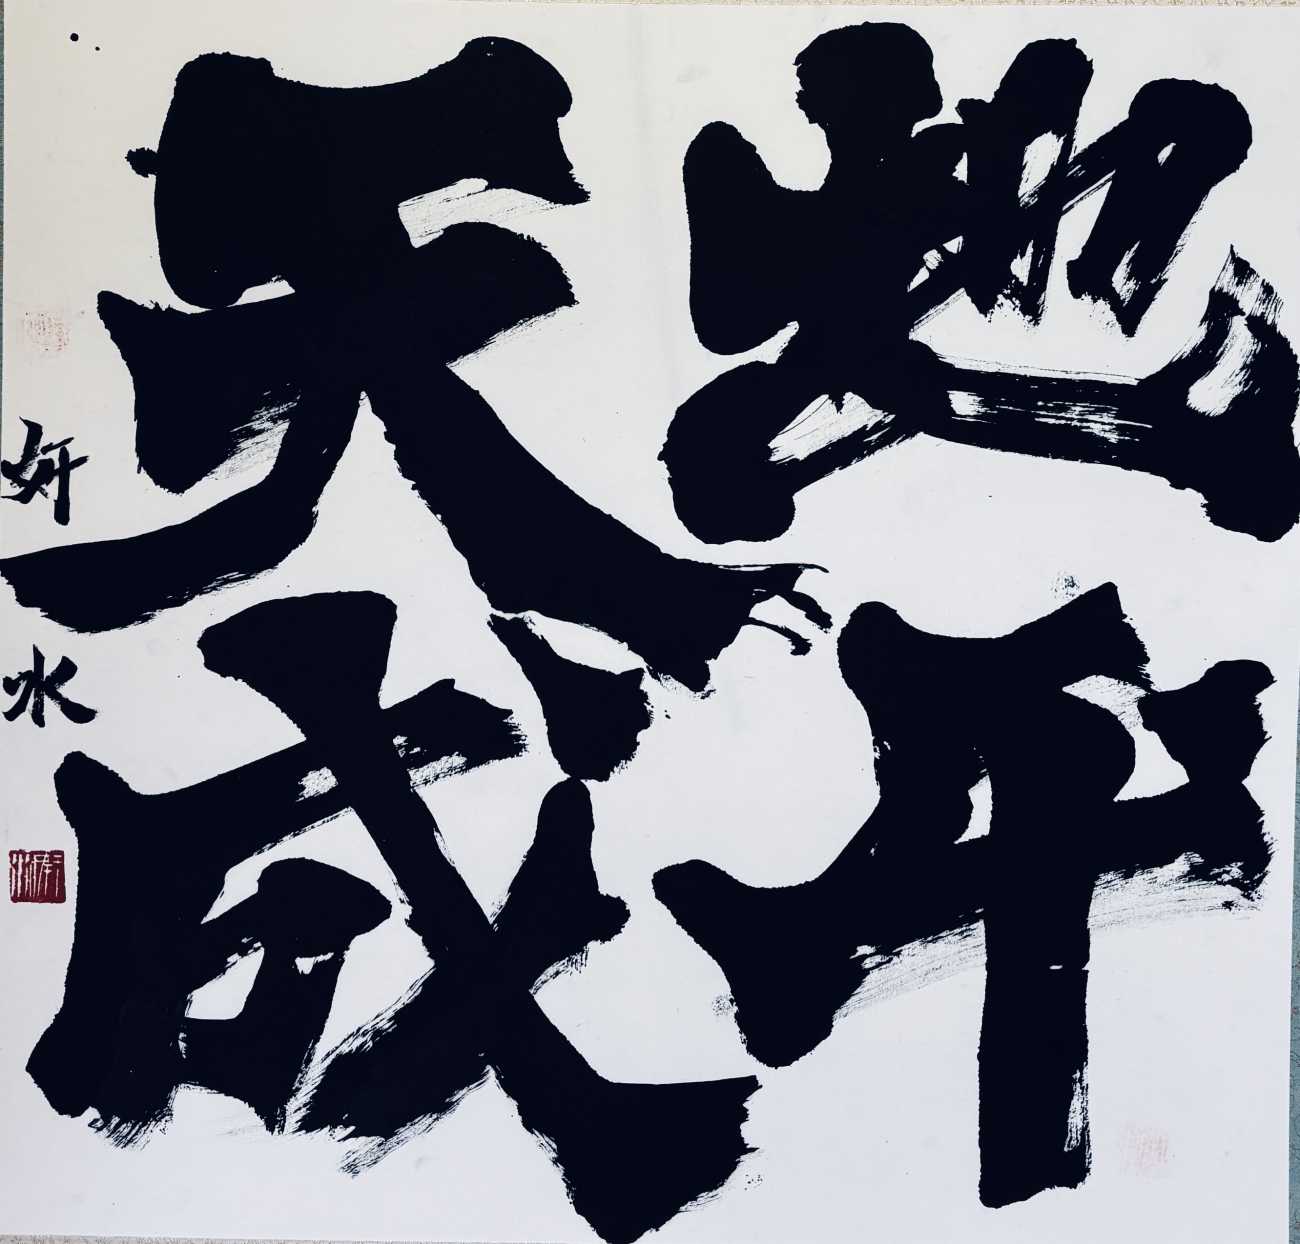 地平
天成
妍水